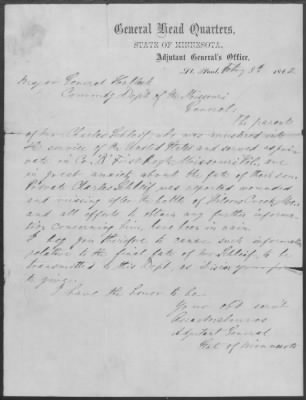 General Head Quarters,
STATE OF MINNESOTA,
Adjutant General's Office,
St. Paul, Feby 3d 1862
Major General Halleck
Commdg Dept of the Missouri
General,
The parents
of Charles who was mustered into
the service of the United States and served as
private in Co. "K" First Regt Missouri Vols. are
in great anxiety about the fate of their son.
Private Charles was reported wounded
and missing after the battle of Wilsons Creek, Mo.
and all efforts to obtain any further informa-
tion concerning him, have been in vain.
I beg you therefore to cause such information
relative to the final fate of to be
transmitted to this Dept. as is in your power
to give.
I have the honor to be
Your obt servt
Adjutant General
State of Minnesota